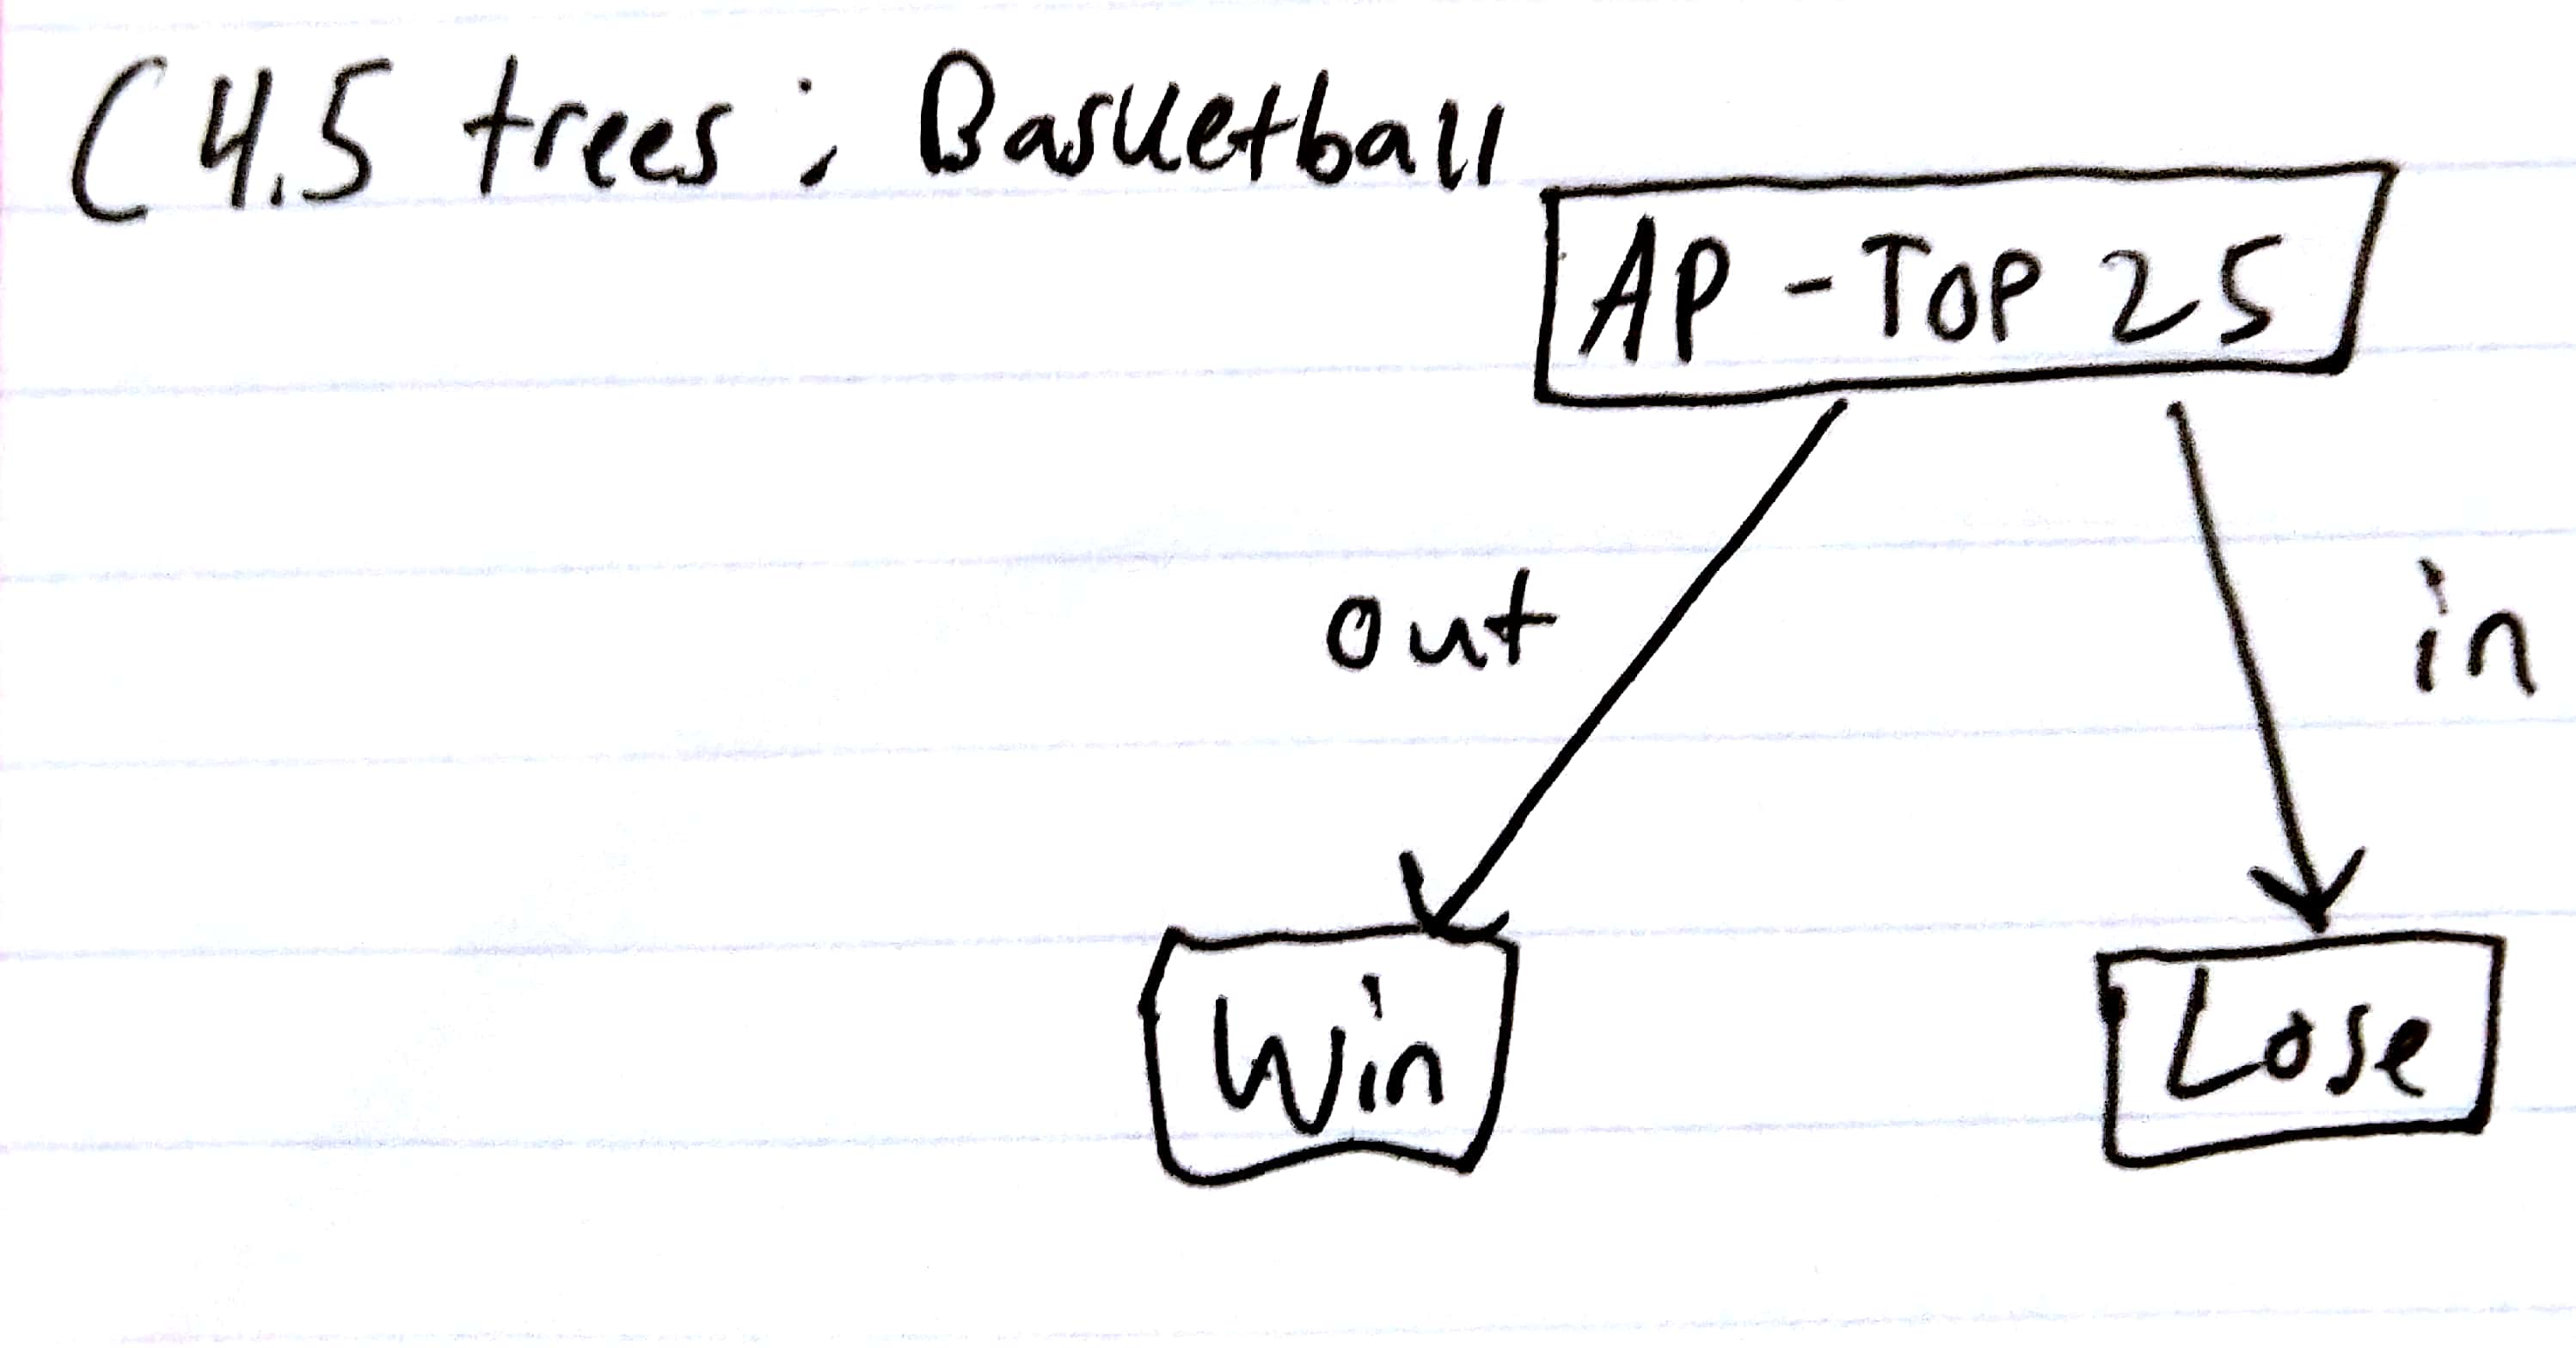 C4.5 trees: Basketball
AP-TOP 25
out
in
Win
Lose